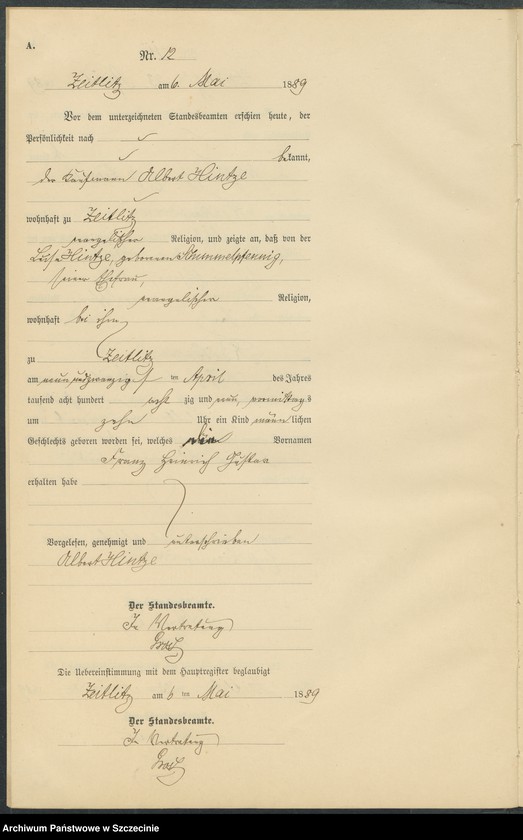 A.
Nr. 12
Zeitlitz am 6. Mai 1889
Vor dem unterzeichneten Standesbeamten erschien heute, der
Persönlichkeit nach
bekannt,
der Kaufmann Albert Hintze
wohnhaft zu Zeitlitz
evangelischer Religion, und zeigte an, daß von der
Luise Hintze, geborenen Schimmelpfennig,
seiner Ehefrau,
evangelischer Religion,
wohnhaft bei ihm
zu Zeitlitz
am neunundzwanzigsten April des Jahres
tausend acht hundert achtzig und neun, vormittags
um zehn Uhr ein Kind männlichen
Geschlechts geboren worden sei, welches die Vornamen
Franz Heinrich Gustav
erhalten habe
Vorgelesen, genehmigt und unterschrieben
Albert Hintze
Der Standesbeamte.
In Vertretung
Die Uebereinstimmung mit dem Hauptregister beglaubigt
Zeitlitz am 6 ten Mai 1889
Der Standesbeamte.
In Vertretung
Archiwum Państwowe w Szczecinie